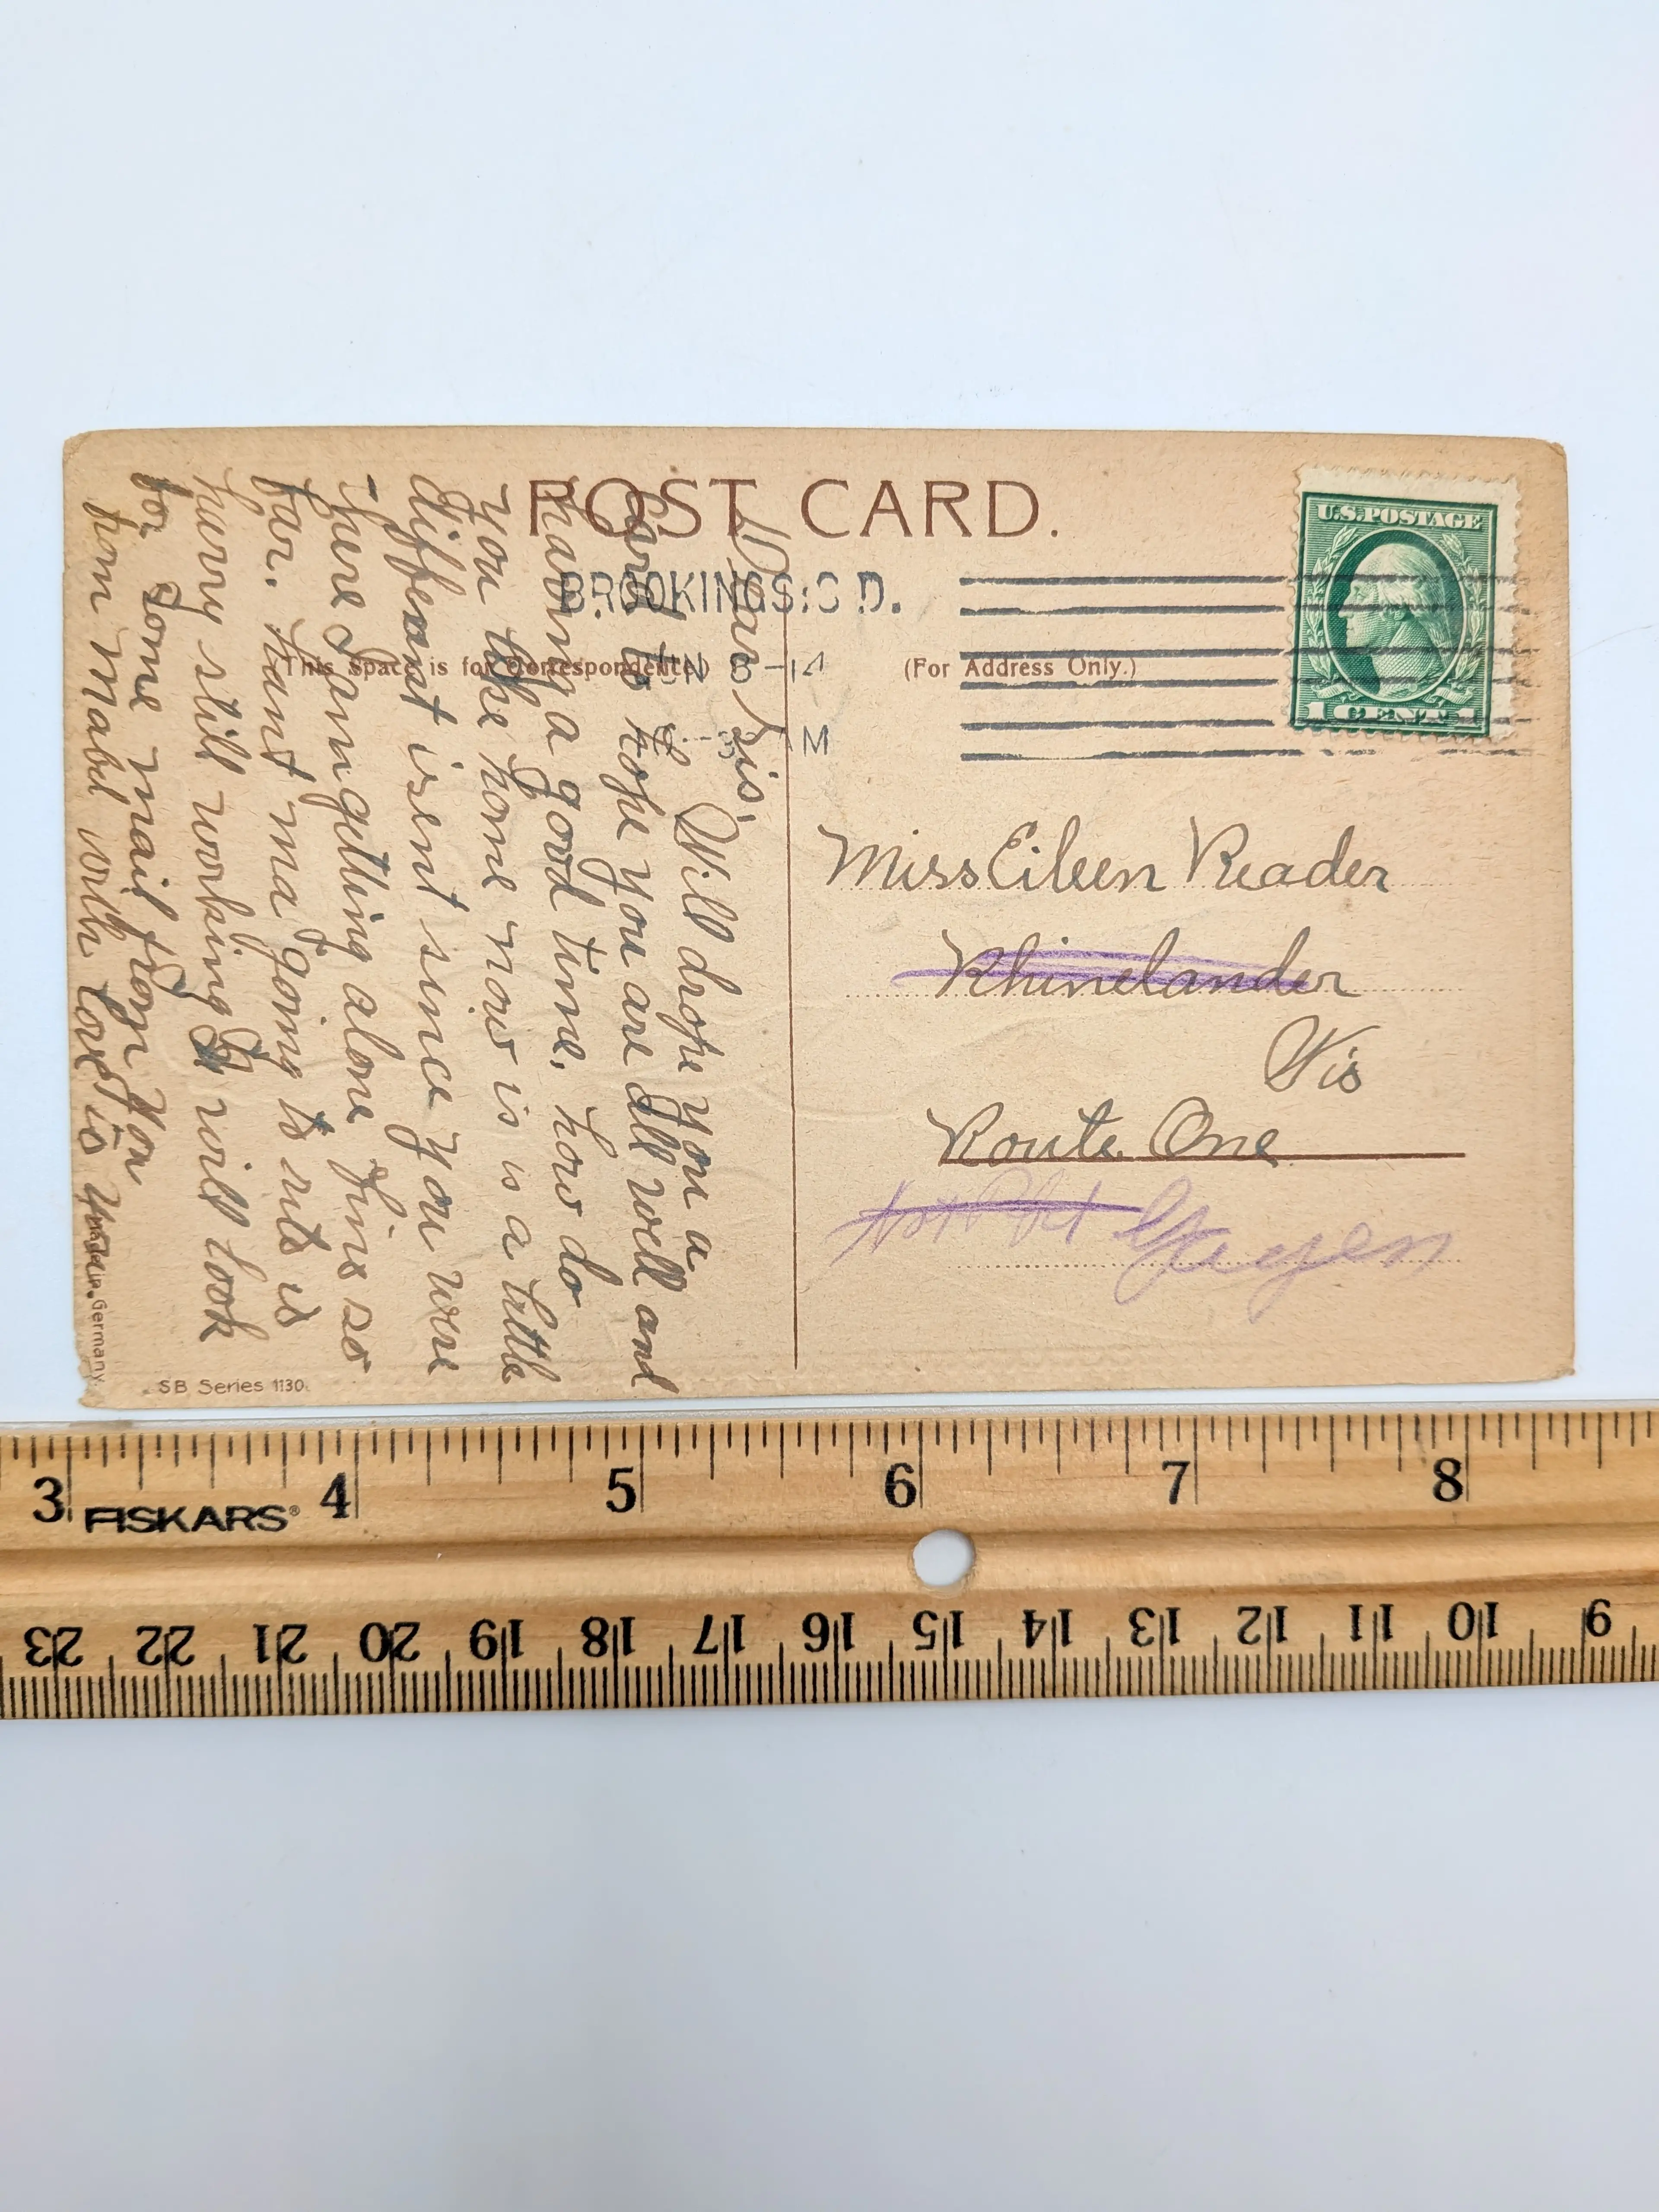 POST CARD.
U.S. POSTAGE
1 CENT 1
BROOKINGS. S. D.
JUN 8 -14
M
(This Space is for Correspondence)
(For Address Only.)
Dear Sis,
Will drope you a
card to hope you are all well and
having a good time. how do
you like the home now is is a little
different isent since you were
there I am getting alone fine so
far. Aunt ma going to
hurry still working I will look
for some mail from you
from Mabel with love
Miss Eileen Reader
Rhinelander
Wis
Route One
Germany.
SB Series 1130.
3 4 5 6 7 8
FISKARS®
23 22 21 20 19 18 17 16 15 14 13 12 11 10 9